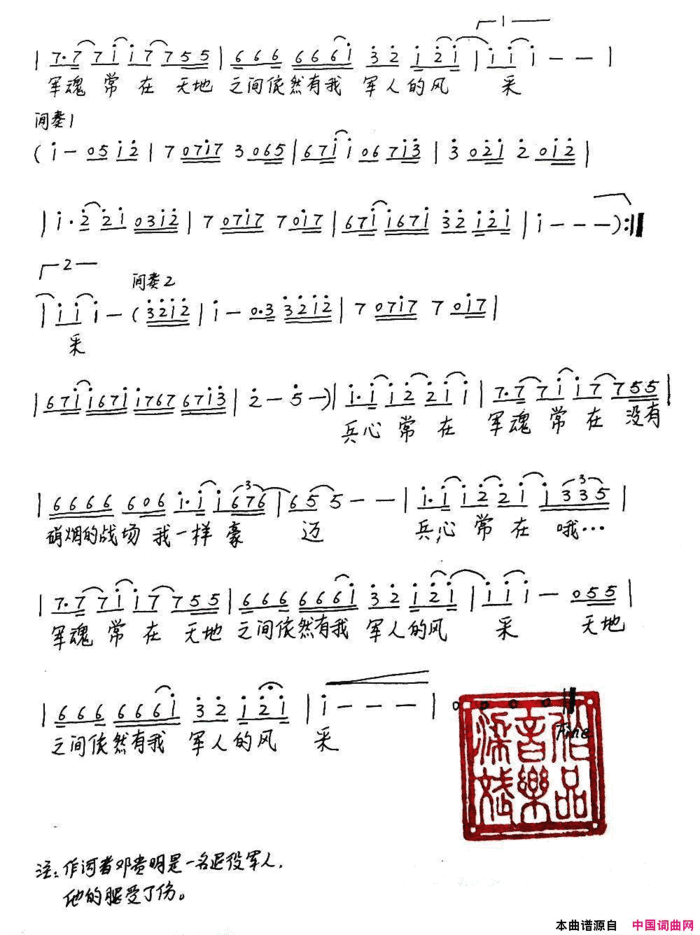 1
| 7·7 7 i i 7 7 5 5 | 6 6 6 6 6 6 i 3 2 i 2 i | i i i - - |
军魂 常 在 天地 之间依然有我 军人的风 采
间奏1
( i - 0 5 i 2 | 7 0 7 i 7 3 0 6 5 | 6 7 i i 0 6 7 i 3 | 3 0 2 i 2 0 i 2 |
| i · 2 2 i 0 3 i 2 | 7 0 7 i 7 7 0 i 7 | 6 7 i i 6 7 i 3 2 i 2 i | i - - - ) :||
2 间奏2
| i i i - ( 3 2 i 2 | i - 0·3 3 2 i 2 | 7 0 7 i 7 7 0 i 7 |
采
| 6 7 i i 6 7 i i 7 6 7 6 7 i 3 | 2 - 5 - ) | i·i i 2 2 i i | 7·7 7 i i 7 7 5 5 |
兵心 常 在 军魂 常 在 没有
| 6 6 6 6 6 0 6 i·i i 6 7 6 | 6 5 5 - - | i·i i 2 2 i i 3 3 5 |
硝烟的战场 我一样豪 迈 兵心 常 在 哦…
| 7·7 7 i i 7 7 5 5 | 6 6 6 6 6 6 i 3 2 i 2 i | i i i - 0 5 5 |
军魂 常 在 天地 之间依然有我 军人的风 采 天地
| 6 6 6 6 6 6 i 3 2 i 2 i | i - - - | 0 0 0 0 ||
之间依然有我 军人的风 采 Fine
注：作词者邓贵明是一名退役军人，
他的腿受了伤。
本曲谱源自 中国词曲网